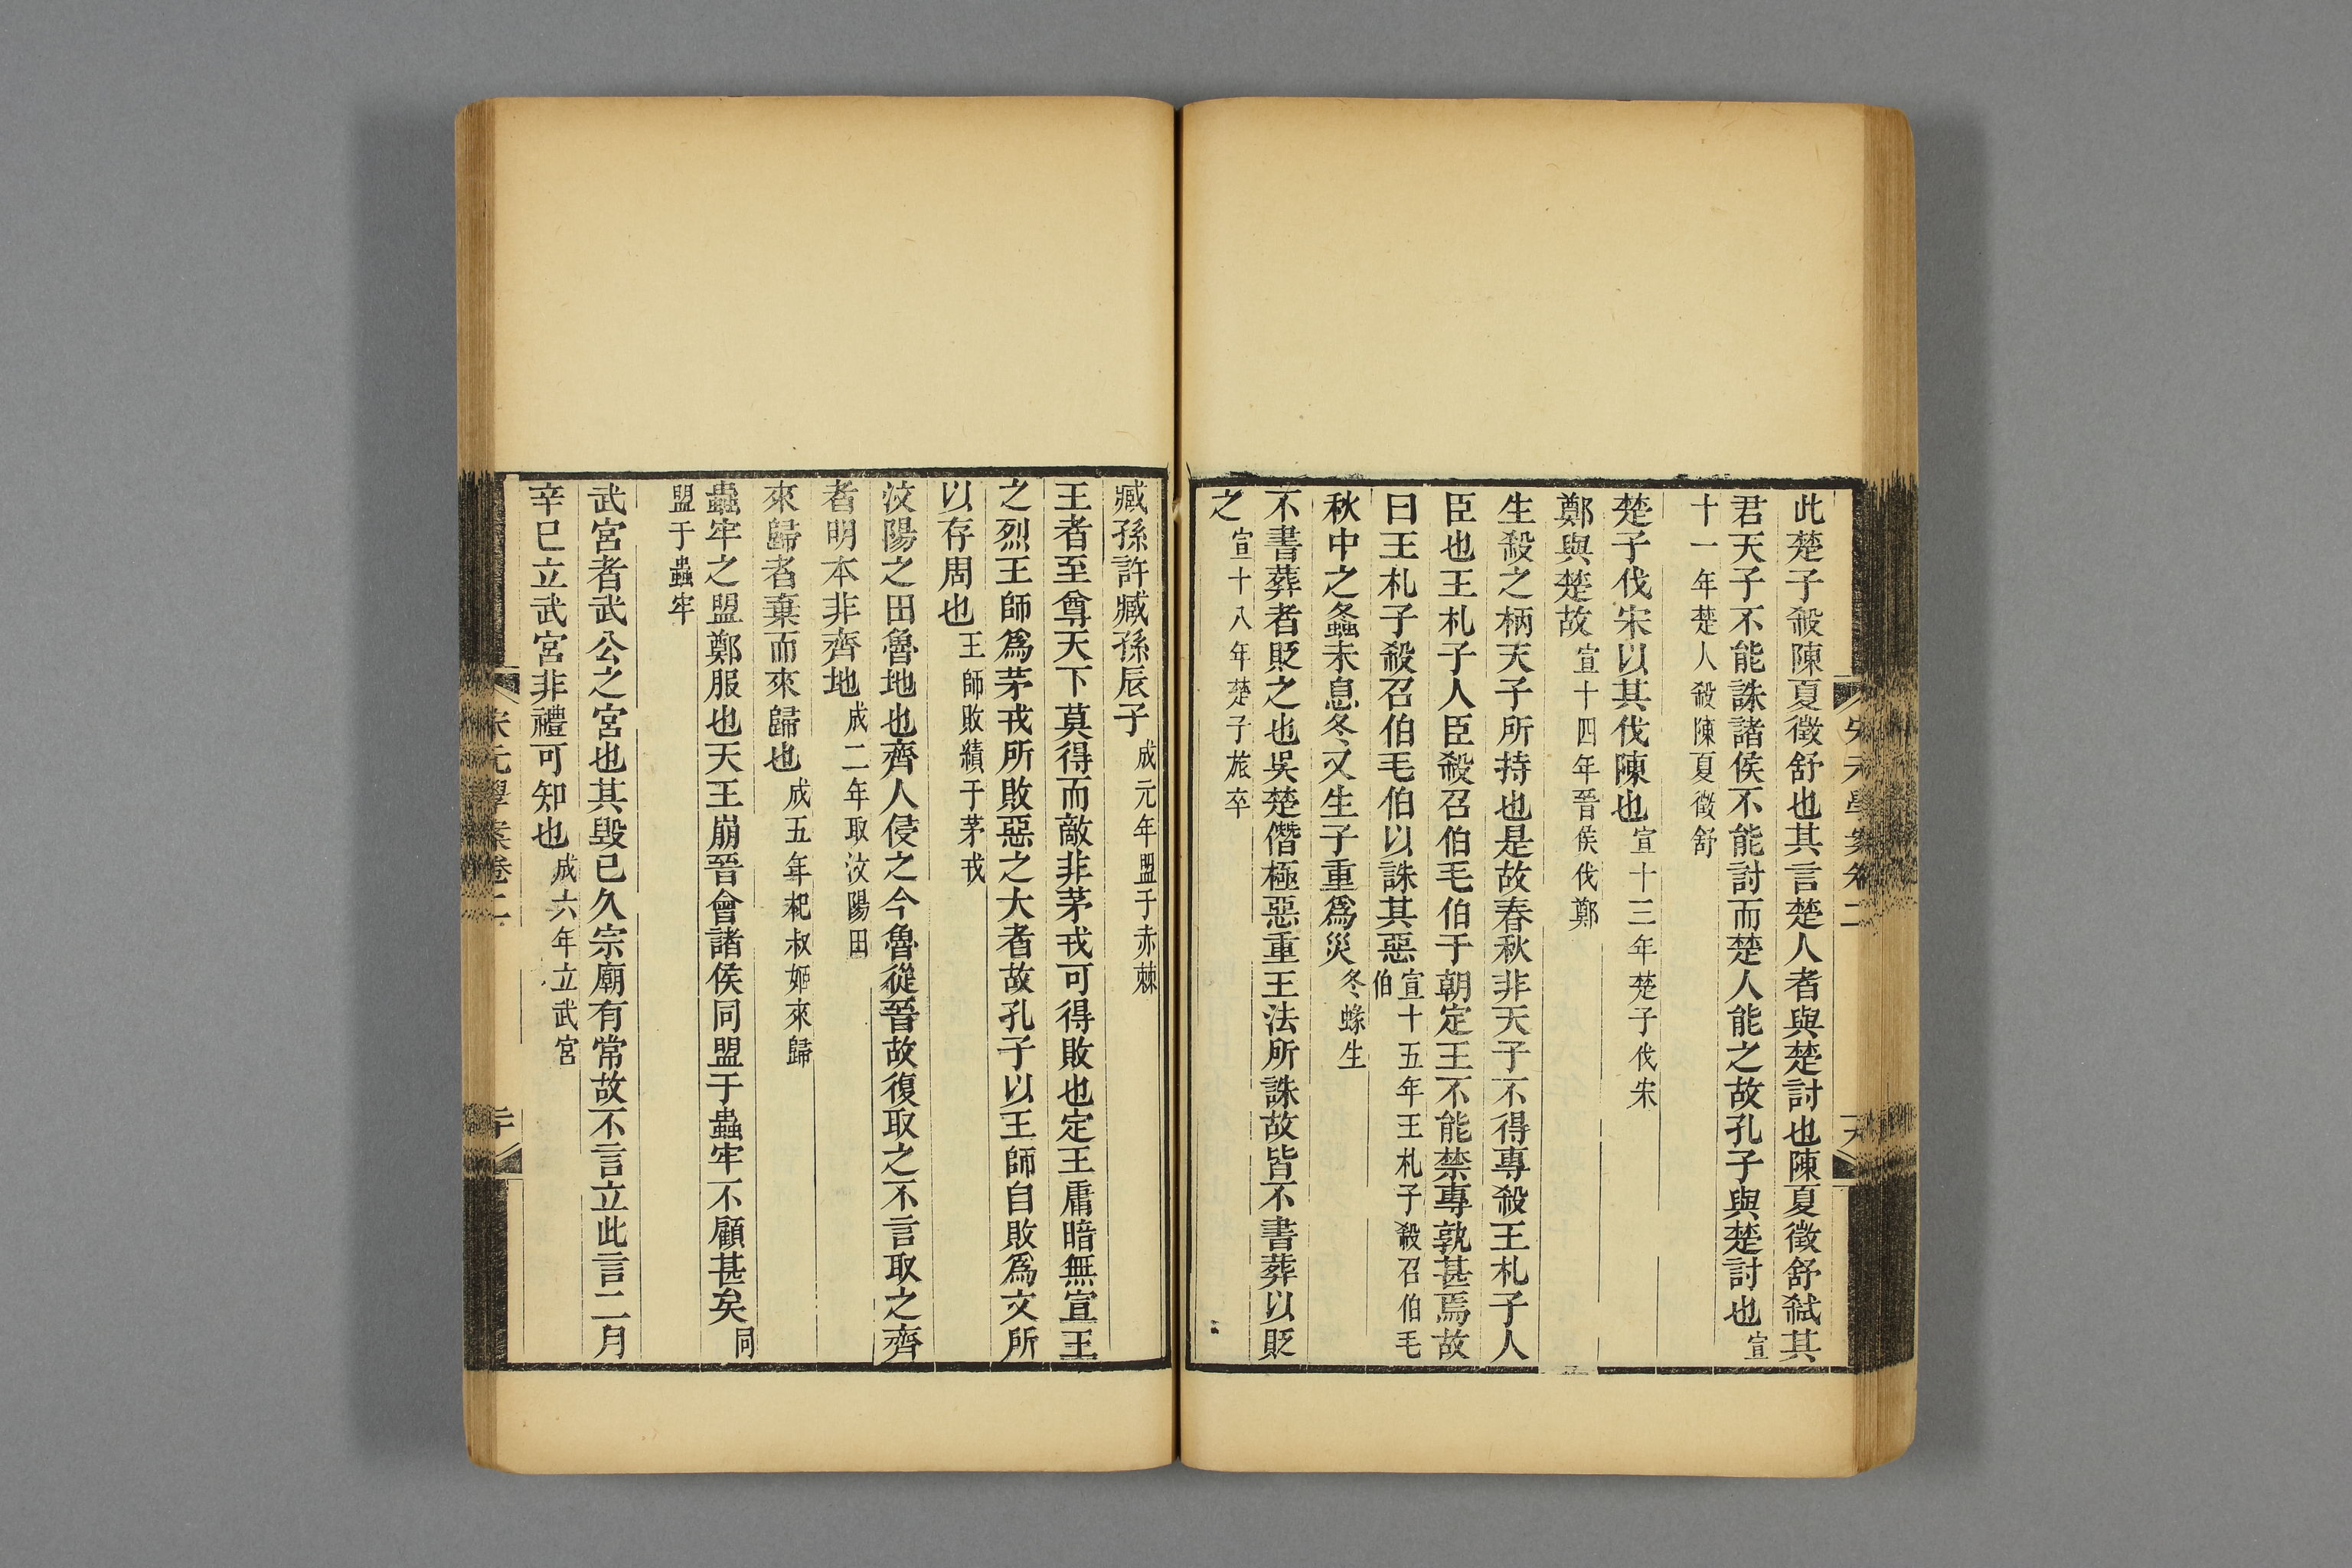 此楚子殺陳夏徵舒也其言楚人者與楚討也陳夏徵舒弒其
君天子不能誅諸侯不能討而楚人能之故孔子與楚討也宣
十一年楚人殺陳夏徵舒
楚子伐宋以其伐陳也宣十三年楚子伐宋
鄭與楚故宣十四年晉侯伐鄭
生殺之柄天子所持也是故春秋非天子不得專殺王札子人
臣也王札子人臣殺召伯毛伯于朝定王不能禁專孰甚焉故
曰王札子殺召伯毛伯以誅其惡宣十五年王札子殺召伯毛
伯
秋中之螽未息冬又生子重爲災冬蝝生
不書葬者貶之也吳楚僭極惡重王法所誅故皆不書葬以貶
之宣十八年楚子旅卒
臧孫許臧孫辰子成元年盟于赤棘
王者至尊天下莫得而敵非茅戎可得敗也定王庸暗無宣王
之烈王師爲茅戎所敗惡之大者故孔子以王師自敗爲文所
以存周也王師敗績于茅戎
汶陽之田魯地也齊人侵之今魯從晉故復取之不言取之齊
者明本非齊地成二年取汶陽田
來歸者棄而來歸也成五年杞叔姬來歸
蟲牢之盟鄭服也天王崩晉會諸侯同盟于蟲牢不顧甚矣同
盟于蟲牢
武宮者武公之宮也其毀已久宗廟有常故不言立此言二月
辛巳立武宮非禮可知也成六年立武宮
宋元學案卷二